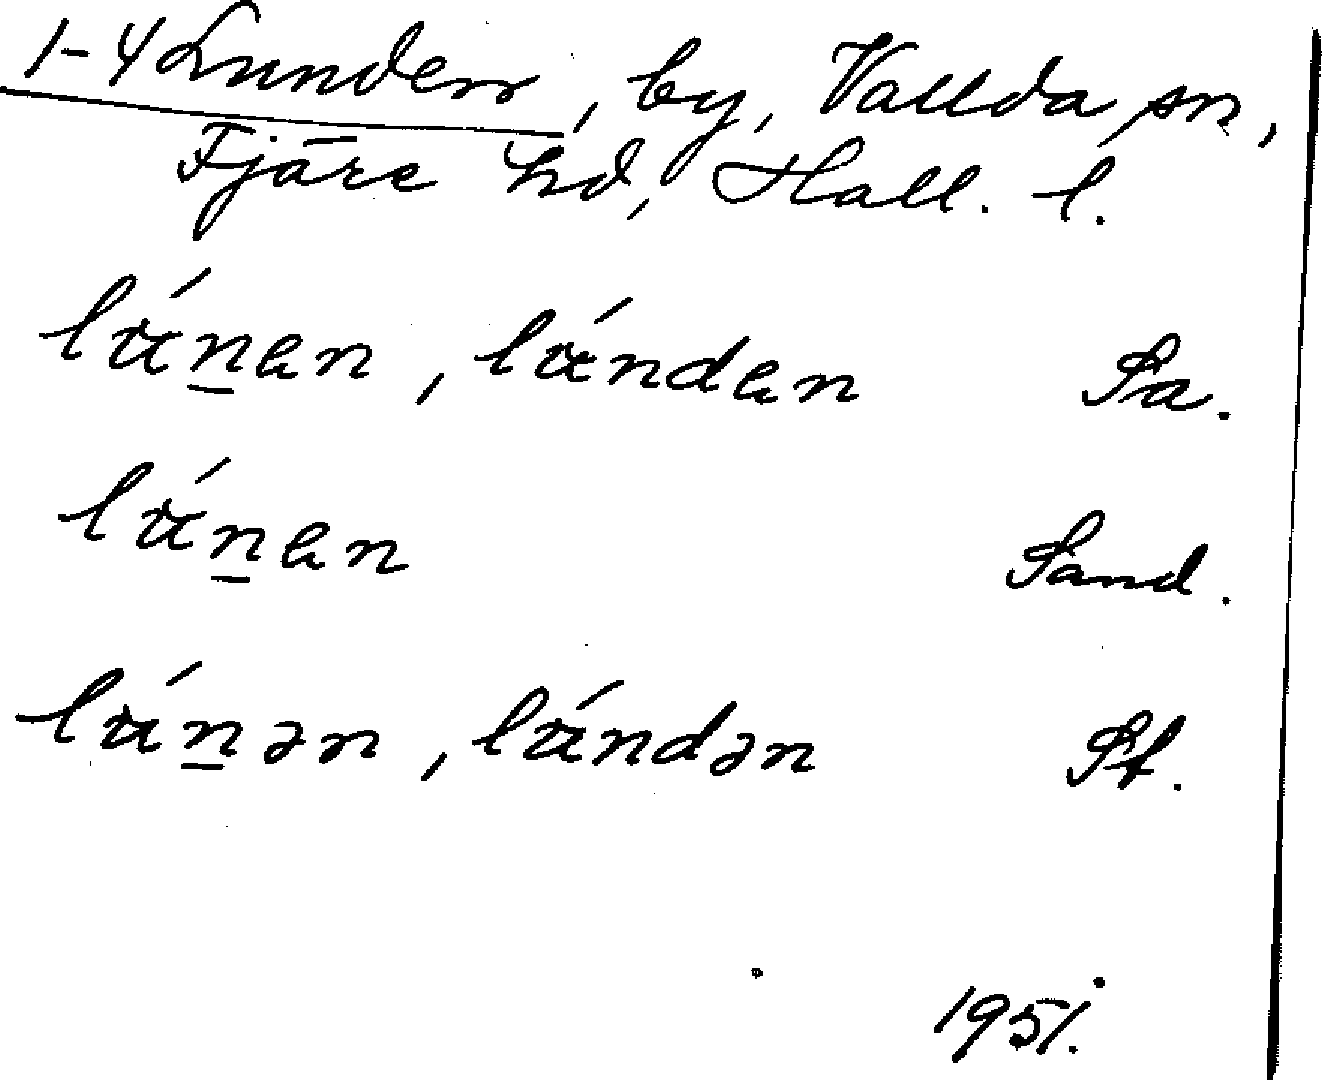 1-4 Lunden, by, Vallda sn,
Fjäre hd, Hall. l.
lún̲en, lúnden Sa.
lún̲en Sand.
lún̲ən, lúndən St.
1951.